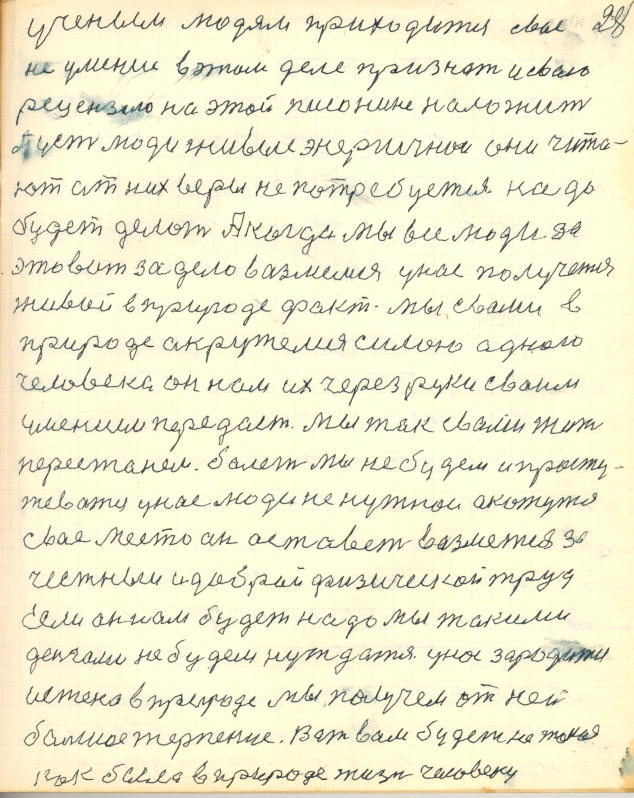 28
ученым людям приходится свае
не умение вэтом деле признат исваю
рецензию на этой писонине наложит
Пуст люди живые энергичнои они чита-
ют а т них веры не потребуется на до
будет делат А когда мы все люди за
это вот за дело вазмемся унас получется
живой в природе факт. мы свами в
природе акружемся силою адного
человека он нам их через руки сваим
умением передаст. мы так свами жит
перестанем. балет мы не будем и просту-
жеватся унас люди не нужнои акажутся
свае место он оставет вазметса за
честныи идобрай физический труд
Если он нам будет надо мы такими
денгами не будем нуждатся. унас зародится
истена в природе мы получем от ней
балшое терпение. Вот вам будет на
как была в природе жизн человеку